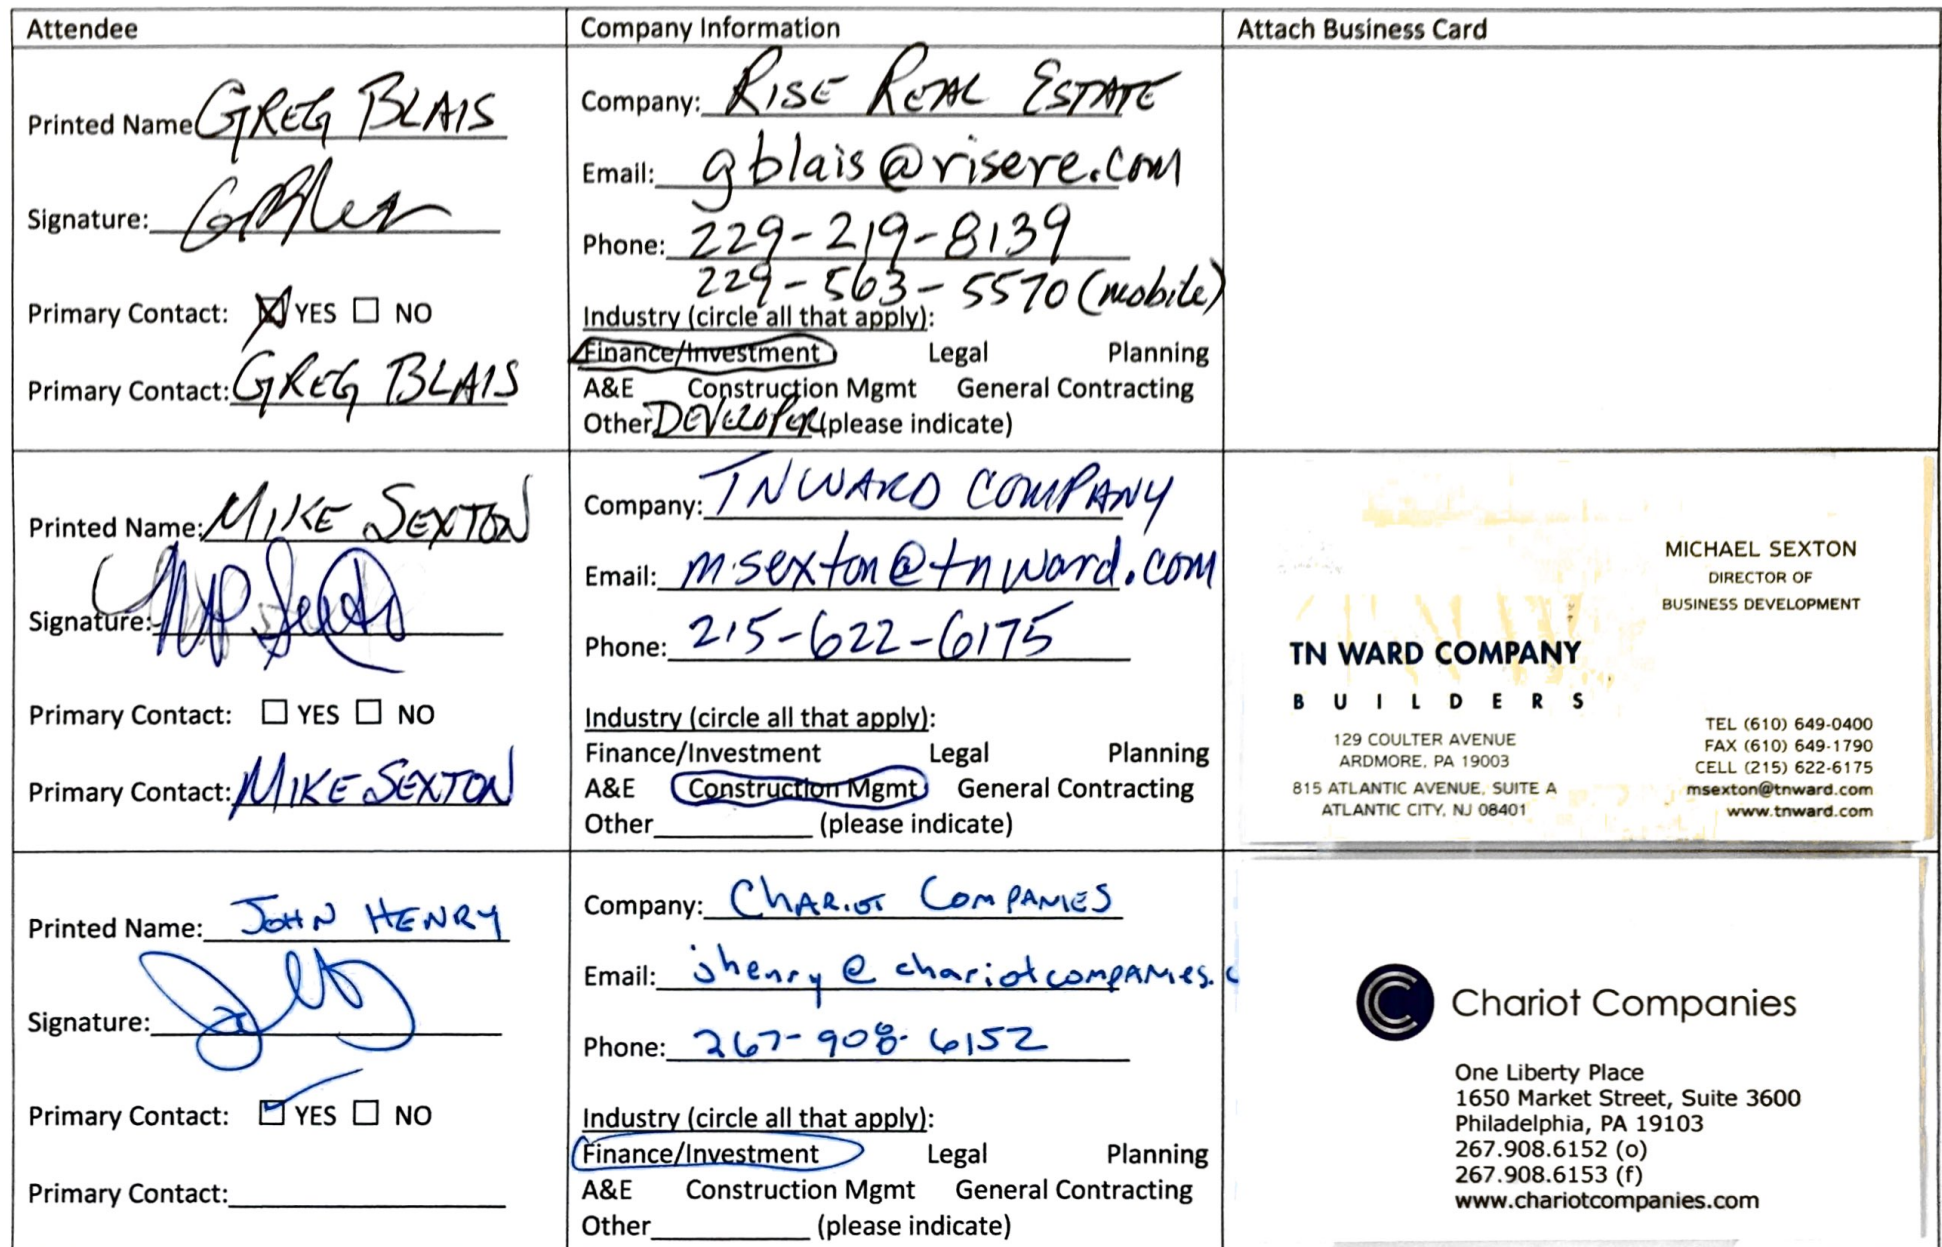 Attendee
Company Information
Attach Business Card
Printed Name GREG BLAIS
Signature:
Primary Contact: YES NO
Primary Contact: GREG BLAIS
Company: RISE REAL ESTATE
Email: gblais@risere.com
Phone: 229-219-8139
229-563-5570 (mobile)
Industry (circle all that apply):
Finance/Investment Legal Planning
A&E Construction Mgmt General Contracting
Other DEVELOPER (please indicate)
Printed Name: MIKE SEXTON
Signature:
Primary Contact: YES NO
Primary Contact: MIKE SEXTON
Company: TNWARD COMPANY
Email: msexton@tnward.com
Phone: 215-622-6175
Industry (circle all that apply):
Finance/Investment Legal Planning
A&E Construction Mgmt General Contracting
Other (please indicate)
MICHAEL SEXTON
DIRECTOR OF
BUSINESS DEVELOPMENT
TN WARD COMPANY
BUILDERS
129 COULTER AVENUE
ARDMORE, PA 19003
815 ATLANTIC AVENUE, SUITE A
ATLANTIC CITY, NJ 08401
TEL (610) 649-0400
FAX (610) 649-1790
CELL (215) 622-6175
msexton@tnward.com
www.tnward.com
Printed Name: JOHN HENRY
Signature:
Primary Contact: YES NO
Primary Contact:
Company: CHARIOT COMPANIES
Email: jhenry@chariotcompanies.c
Phone: 267-908-6152
Industry (circle all that apply):
Finance/Investment Legal Planning
A&E Construction Mgmt General Contracting
Other (please indicate)
Chariot Companies
One Liberty Place
1650 Market Street, Suite 3600
Philadelphia, PA 19103
267.908.6152 (o)
267.908.6153 (f)
www.chariotcompanies.com